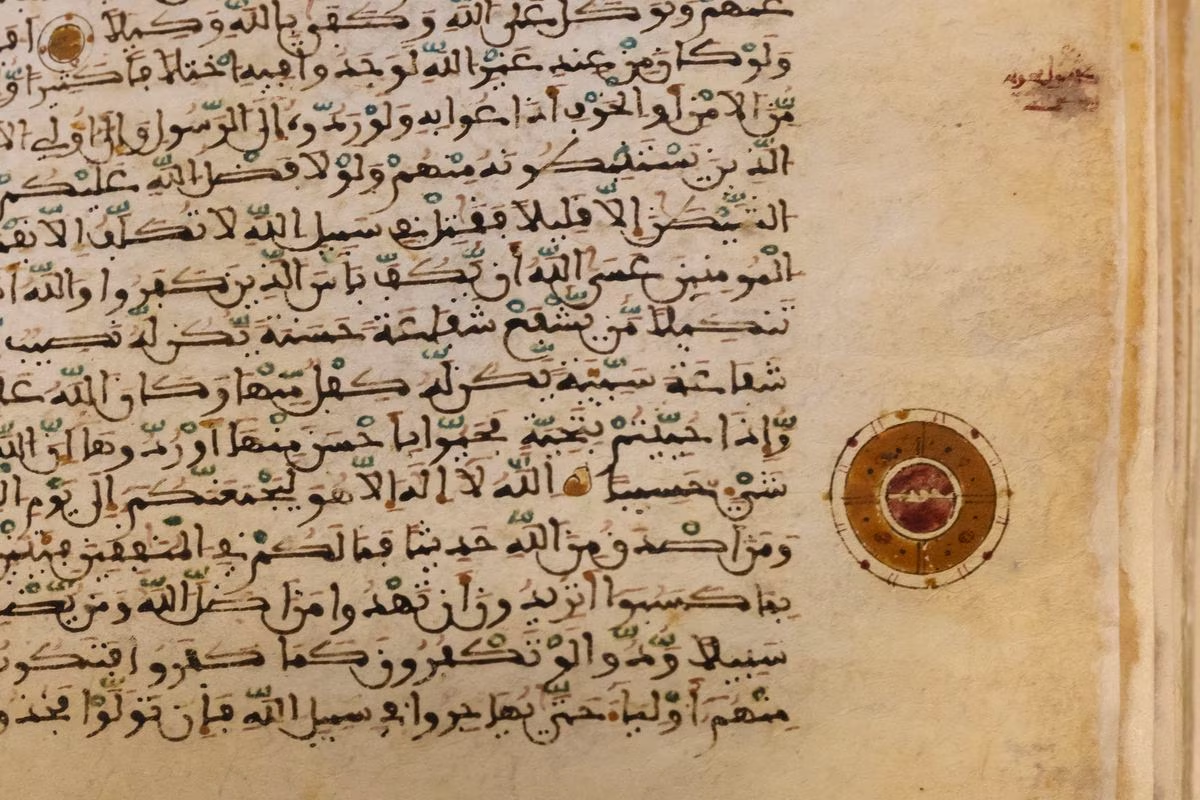 عنهم وتوكل على الله وكفى بالله وكيلا
ولو كان من عند غير الله لوجدوا فيه اختلافا كثيرا
من الامن أو الخوف أذاعوا به ولو ردوه إلى الرسول وإلى أولي
الذين يستنبطونه منهم ولولا فضل الله عليكم
الشيطن إلا قليلا فقتل في سبيل الله لا تكلف إلا
المومنين عسى الله أن يكف بأس الذين كفروا والله
تنكيلا من يشفع شفاعة حسنة يكن له نصيب
شفاعة سيئة يكن له كفل منها وكان الله
وإذا حييتم بتحية فحيوا بأحسن منها أو ردوها إن الله
شيء حسيبا الله لا إله إلا هو ليجمعنكم إلى يوم
ومن أصدق من الله حديثا فما لكم في المنفقين فئتين
بما كسبوا أتريدون أن تهدوا من أضل الله ومن
سبيلا ودوا لو تكفرون كما كفروا
منهم أولياء حتى يهاجروا في سبيل الله فإن تولوا